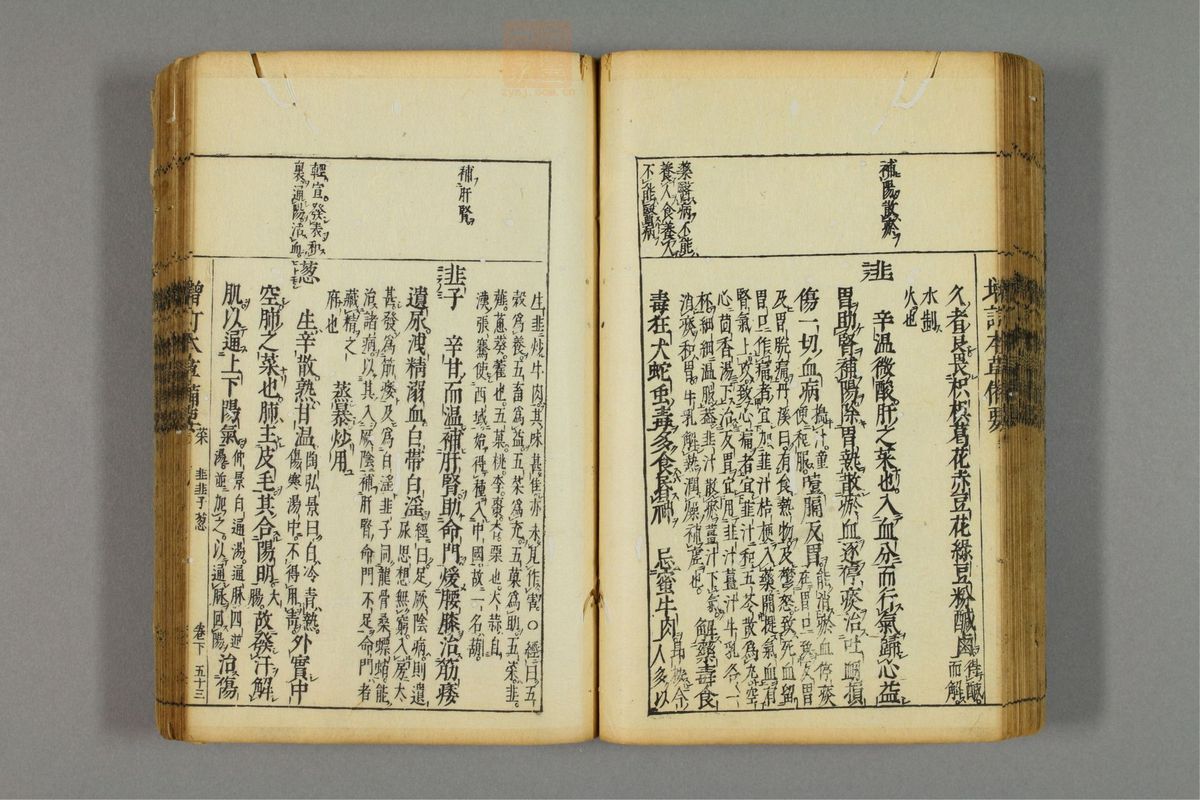 補陽散瘀
藥醫病不能
養人食養人
不能醫病
久者畏枳椇葛花赤豆花綠豆粉鹹鹵
水制
火也
韭
辛溫微酸肝之菜也入血分而行氣歸心益
胃助腎補陽除胃熱散瘀血逐停痰治吐衂損
傷一切血病 搗汁童便和服 噎膈反胃 能消瘀血停痰在胃口致反胃
及胃脘痛丹溪曰有食熱物及鬱怒致死血留
胃口作痛者宜加韭汁桔梗入藥開提氣血有
腎氣上攻致心痛者宜韭汁和五苓散為丸空
心茴香湯下治反胃宜用韭汁薑汁牛乳各一
杯細細溫服蓋韭汁散瘀薑汁下氣
消痰和胃牛乳解熱潤燥補虛也 解藥毒食
毒狂犬蛇虫毒多食昏神 忌蜜牛肉 人多以
補肝腎
輕宣發表和
裏通陽活血
生韭炒牛肉其味甚佳亦未見作害〇經曰五
穀為養五畜為益五菜為充五菓為助五菜韭
薤葱葵藿也五菓桃李棗杏栗也火蒜自
漢張騫使西域始得種入中國故一名葫
韭子
辛甘而溫補肝腎助命門煖腰膝治筋痿
遺尿洩精溺血白帶白淫 經曰足厥陰病則遺尿思想無窮入房太
甚發為筋痿及為白淫韭子同龍骨桑螵蛸能
治諸病以其入厥陰補肝腎命門不足命門者
藏精之
府也 蒸暴炒用
葱
生辛散熟甘溫 陶弘景曰白冷青熱傷寒湯中不得用青 外實中
空肺之菜也肺主皮毛其合陽明 大腸 故發汗解
肌以通上下陽氣 仲景白通湯通脉四逆湯並加之以通脉回陽 治傷
增訂本草備要 菜 韭韭子葱
卷下 五十三